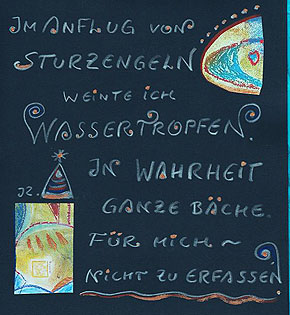 IM ANFLUG VON
STURZENGELN
WEINTE ICH
WASSERTROPFEN.
IN WAHRHEIT
JZ.
GANZE BÄCHE.
FÜR MICH ~
NICHT ZU ERFASSEN